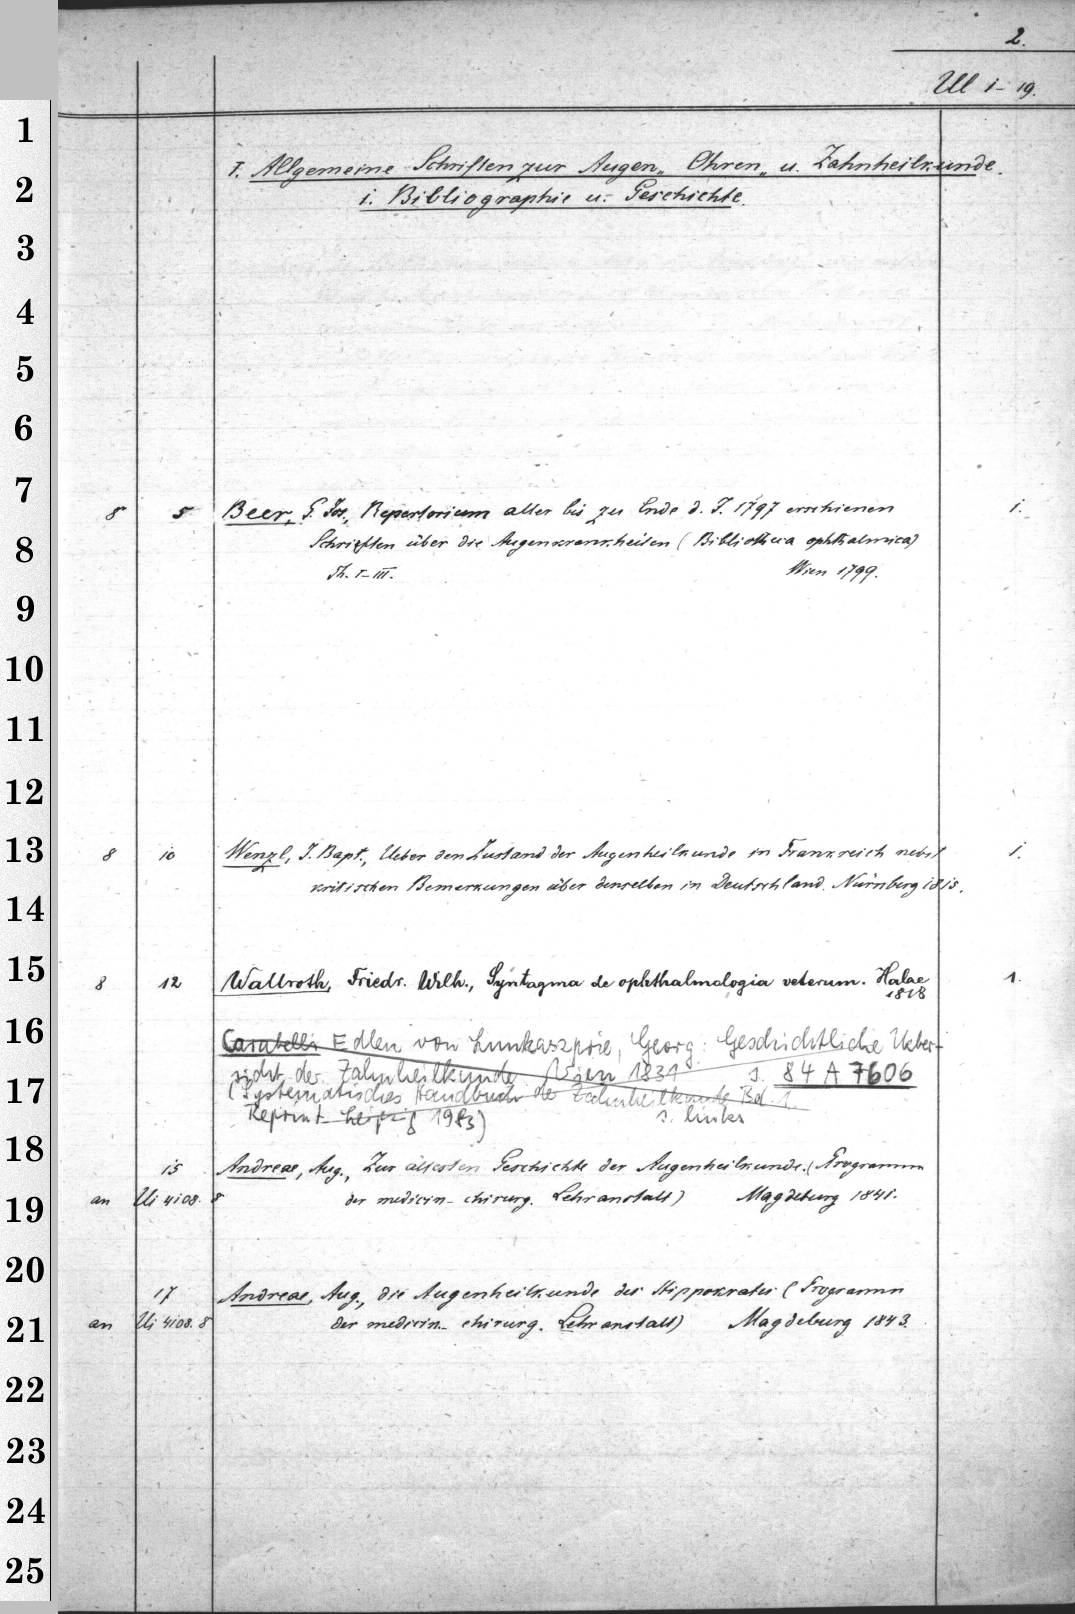 2.
Ul 1-19.
1
2
3
4
5
6
7
8
9
10
11
12
13
14
15
16
17
18
19
20
21
22
23
24
25
I. Allgemeine Schriften zur Augen„ Ohren„ u. Zahnheilkunde.
1. Bibliographie u. Geschichte.
8 5 Beer, G. Jos., Repertorium aller bis zu Ende d. J. 1797 erschienen 1.
Schriften über die Augenkrankheiten (Bibliotheca ophthalmica)
Th. I-III. Wien 1799.
8 10 Wenzl, J. Bapt., Ueber den Zustand der Augenheilkunde in Frankreich nebst 1.
kritischen Bemerkungen über denselben in Deutschland. Nürnberg 1815.
8 12 Wallroth, Friedr. Wilh., Syntagma de ophthalmologia veterum. Halae 1.
1818
Carabelli Edlen von Lunkaszprie, Georg: Geschichtliche Ueber-
sicht der Zahnheilkunde Wien 1831 s. 84 A 7606
(Systematisches Handbuch der Zahnheilkunde Bd. 1.
Reprint Leipzig 1983) s. links
15 Andreae, Aug., Zur ältesten Geschichte der Augenheilkunde. (Programm
an Ui 4108. 8 der medicin-chirurg. Lehranstalt) Magdeburg 1841.
17 Andreae, Aug., die Augenheilkunde des Hippokrates (Programm
an Ui 4108. 8 der medicin-chirurg. Lehranstalt) Magdeburg 1843.